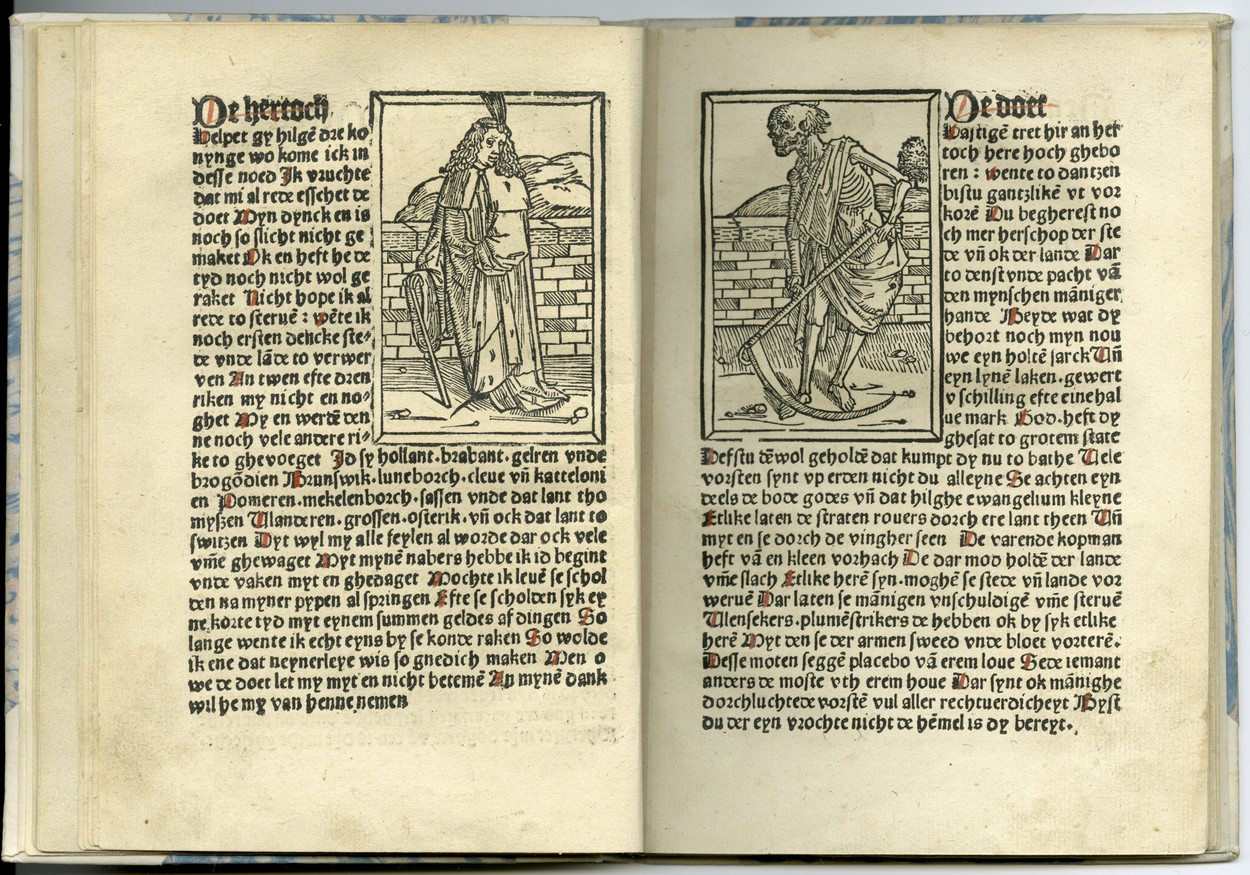 De hertoch
Helpet gy hilgē dre ko
nynge wo kome ick in
desse noed Ik vruchte
dat mi al rede esschet de
doet Myn dynck en is
noch so slicht nicht ge
maket Ok en heft he de
tyd noch nicht wol ge
raket Nicht hope ik al
rede to steruē : wēte ik
noch ersten dencke ste⸗
de vnde lāde to verwer
ven An twen efte dren
riken my nicht en no⸗
ghet My en werdē den
ne noch vele andere ri⸗
ke to ghevoeget Id sy hollant.brabant.gelren vnde
brogōdien Brunswik.luneborch.cleue vn̄ katteloni
en Pomeren.mekelenborch.sassen vnde dat lant tho
myszen Vlanderen.grossen.osterik.vn̄ ock dat lant to
switzen Dyt wyl my alle feylen al worde dar ock vele
vm̄e ghewaget Myt mynē nabers hebbe ik id begint
vnde vaken myt en ghedaget Mochte ik leuē se schol
den na myner pypen al springen Efte se scholden syk ey
ne korte tyd myt eynem summen geldes af dingen So
lange wente ik echt eyns by se konde raken So wolde
ik ene dat neynerleye wis so gnedich maken Men o
we de doet let my myt en nicht betemē An mynē dank
wil he my van henne nemen
De doet
Hastigē tret hir an her
toch here hoch ghebo
ren : wente to dantzen
bistu gantzlikē vt vor
korē Du begherest no
ch mer herschop der ste
de vn̄ ok der lande Dar
to denst vnde pacht vā
den mynschen māniger
hande Beyde wat dy
behort noch myn nou
we eyn holtē sarck Vn̄
eyn lynē laken.gewert
v schilling efte eine hal
ue mark God.heft dy
ghesat to grotem state
Hefstu dēwol geholdē dat kumpt dy nu to bathe Vele
vorsten synt vp erden nicht du alleyne Se achten eyn
deels de bode godes vn̄ dat hilghe ewangelium kleyne
Etlike laten de straten rouers dorch ere lant theen Vn̄
myt en se dorch de vingher seen De varende kopman
heft vā en kleen vorhach De dar mod holdē der lande
vm̄e slach Etlike herē syn.moghē se stede vn̄ lande vor
weruē Dar laten se mānigen vnschuldigē vm̄e steruē
Vlensekers.plumēstrikers de hebben ok by syk etlike
herē Myt den se der armen sweed vnde bloet vorterē.
Desse moten seggē placebo vā erem loue Sede iemant
anders de moste vth erem houe Dar synt ok mānighe
dorchluchtede vorstē vul aller rechtuerdicheyt Byst
du der eyn vrochte nicht de hēmel is dy bereyt.